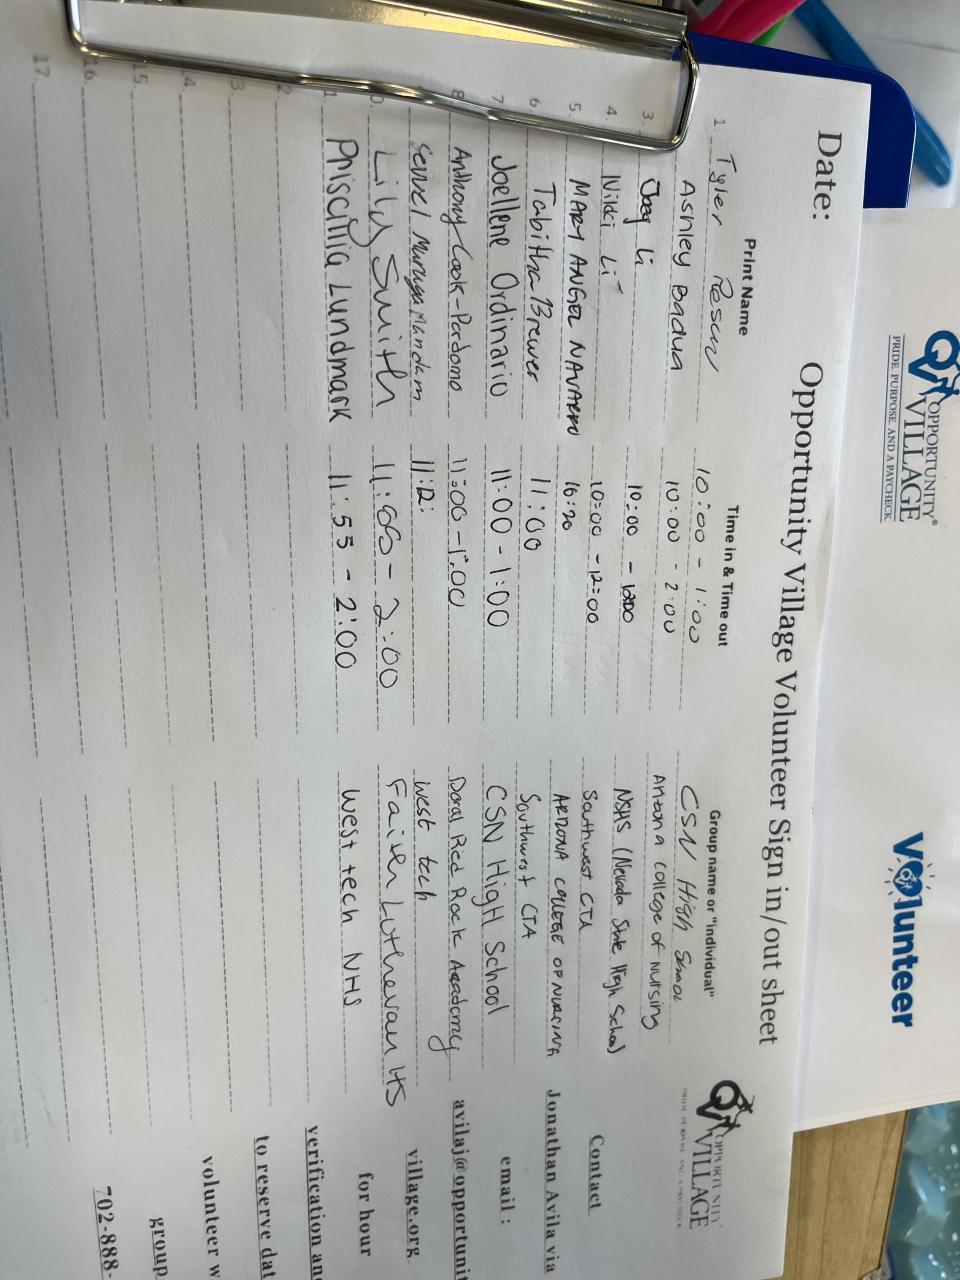 OPPORTUNITY®
VILLAGE
PRIDE, PURPOSE, AND A PAYCHECK
Volunteer
Opportunity Village Volunteer Sign in/out sheet
OPPORTUNITY
VILLAGE
Date:
Print Name Time in & Time out Group name or "Individual"
1. Tyler 10:00 - 1:00 CSN High School
Ashley Badua 10:00 - 2:00 Arizona College of Nursing
3. Joey Li 10:00 - 1200 NSHS (Nevada State High School)
4. Nikki Li 10:00 - 12:00 Southwest CTA
5. MARY ANGEL NAVARRO 10:20 ARIZONA COLLEGE OF NURSING
6. Tabitha Brewer 11:00 Southwest CTA
7. Joellene Ordinario 11:00 - 1:00 CSN High School
8. Anthony Cook-Perdomo 11:00 - 1:00 Doral Red Rock Academy
11:12: West tech
0. Lily Smith - 2:00 Faith Lutheran HS
1. Priscillia Lundmark 11:55 - 2:00 West tech NHS
2
3.
4.
15.
16.
17.
Contact
Jonathan Avila via
email :
avilaj@opportunit
village.org
for hour
verification an
to reserve dat
volunteer w
group
702-888-